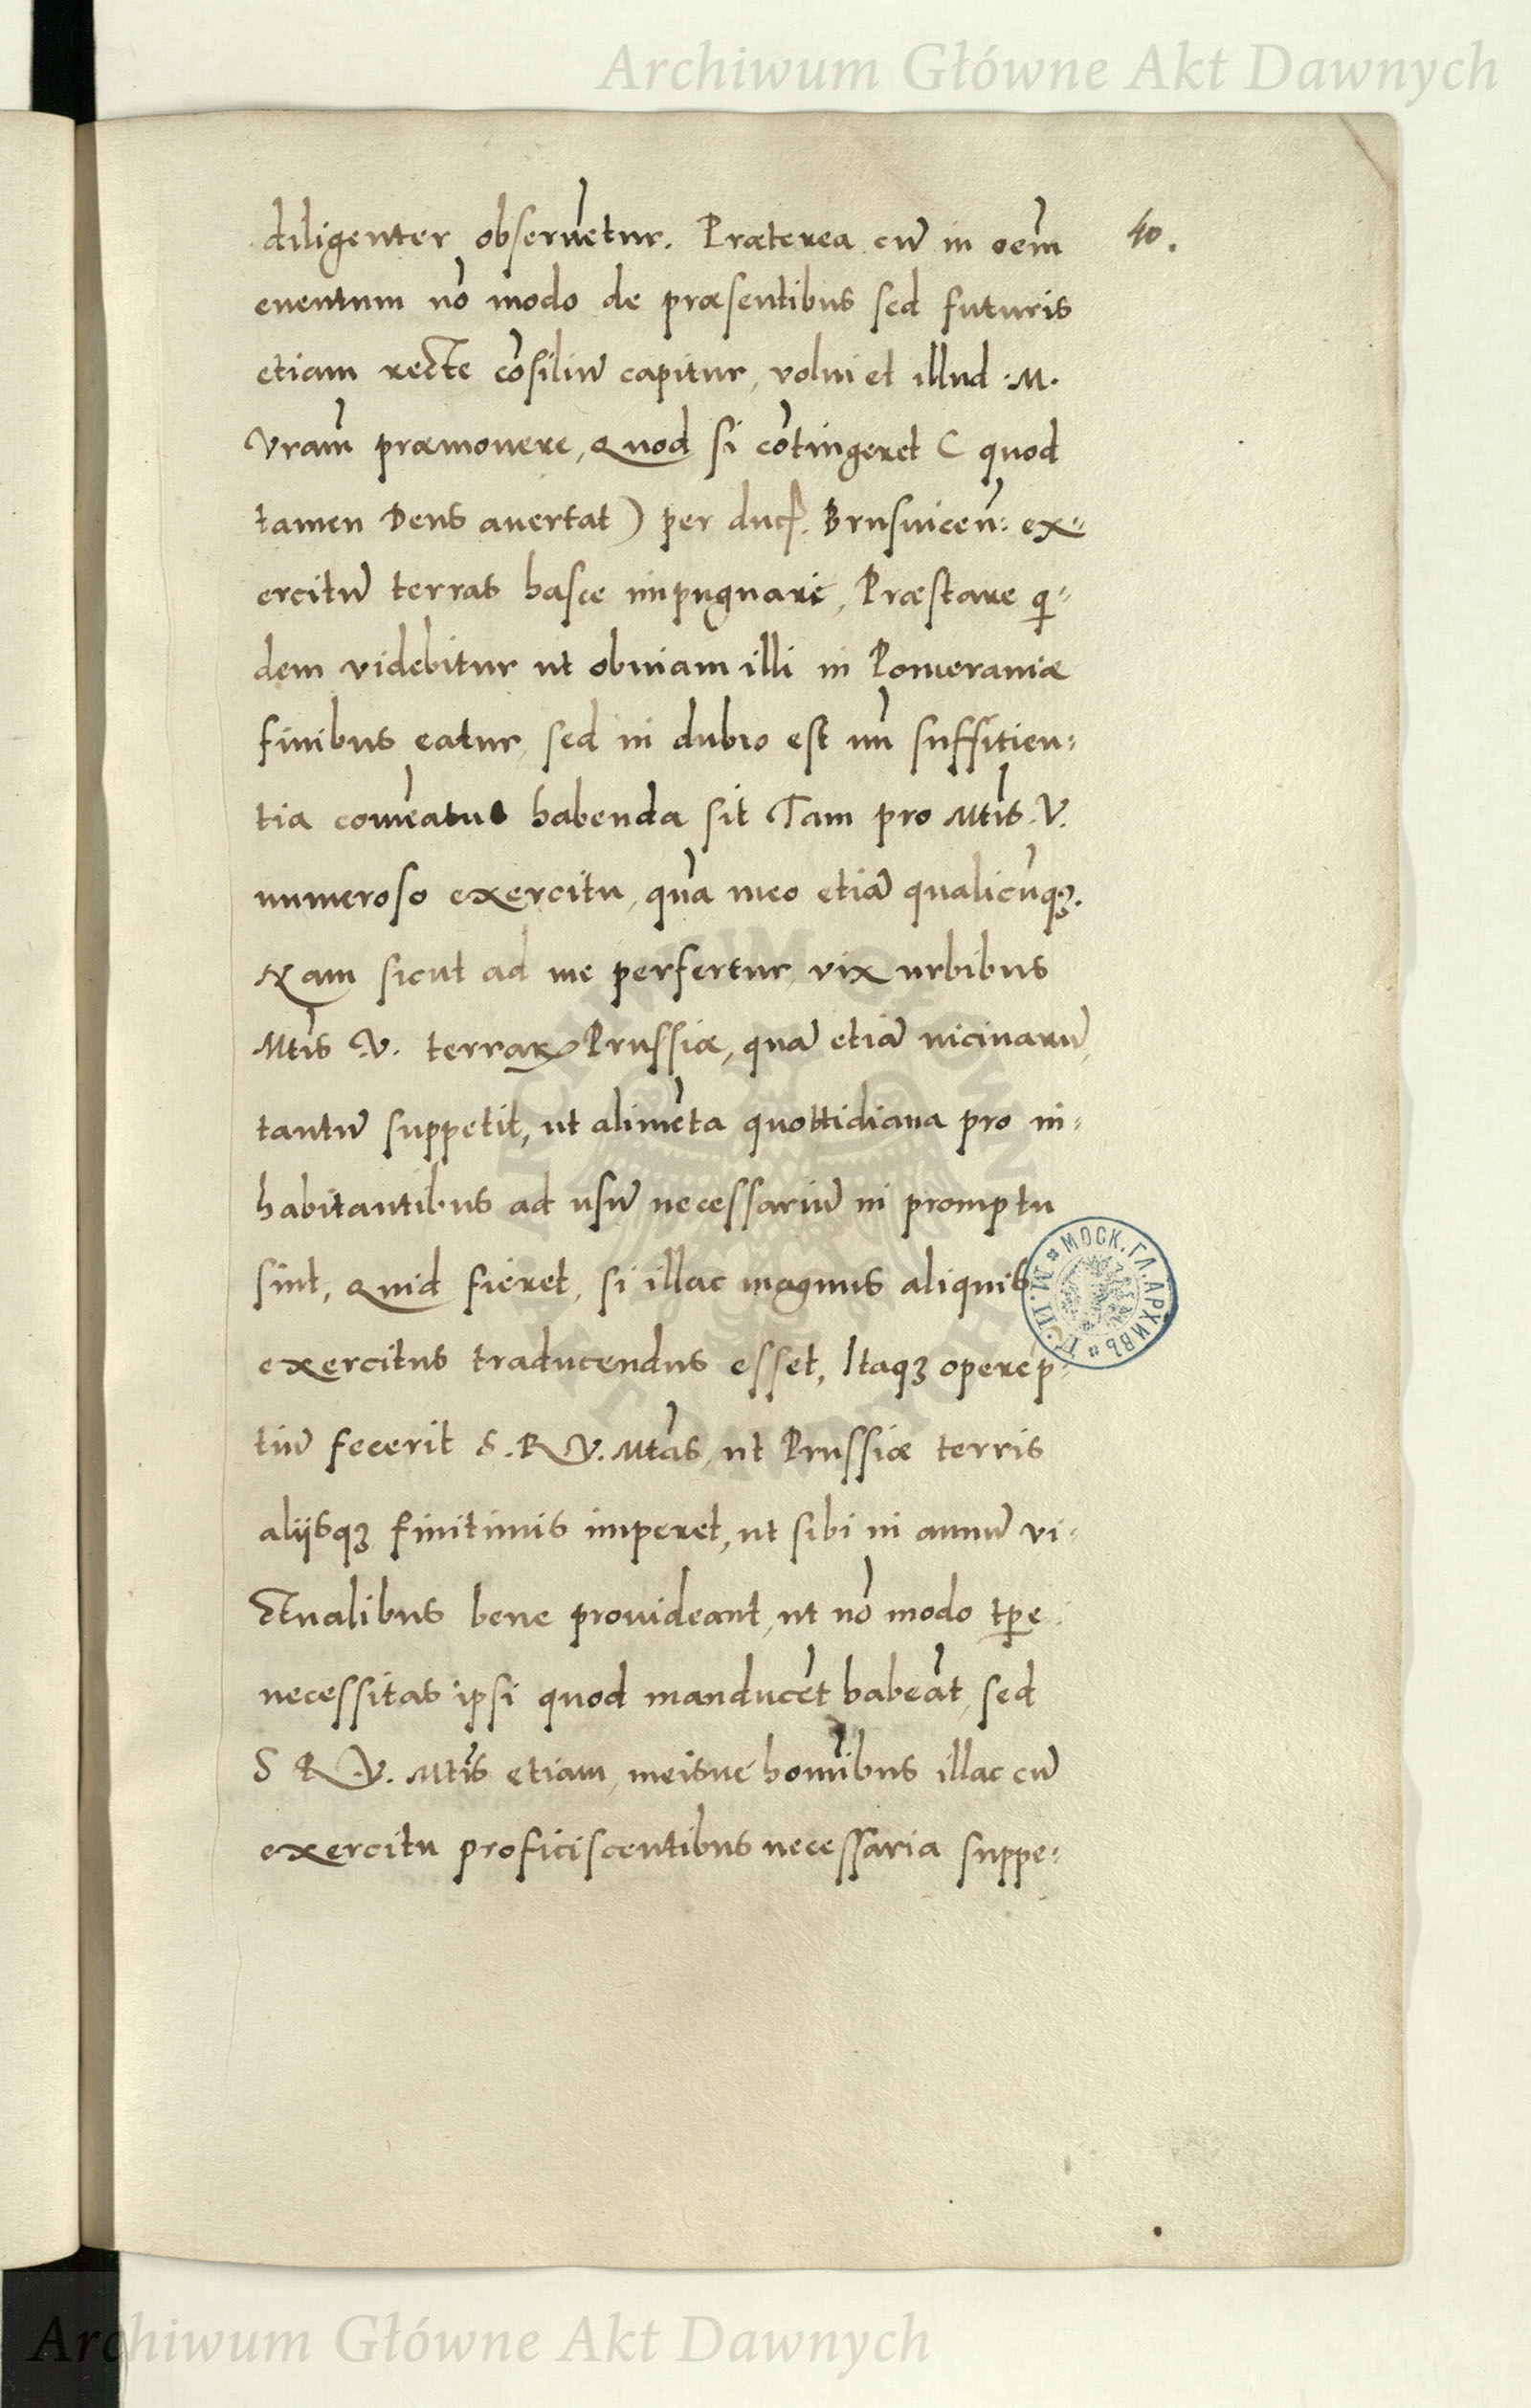 Archiwum Główne Akt Dawnych
40.
diligenter obseruetur. Præterea cū in oēm
euentum nō modo de præsentibus sed futuris
etiam recte cōsiliū capitur, volui et illud .M.
Vram̄ præmonere, Quod si cōtingeret ( quod
tamen Deus auertat ) per duc. Brusuiceñ: ex-
ercitū terras hasce impugnari, Præstare q-
dem videbitur ut obuiam illi in Pomeraniæ
finibus eatur, sed in dubio est nū suffitien-
tia comeatus habenda sit Tam pro Mtis. V.
numeroso exercitu, quā meo etiā qualicūqȝ.
Nam sicut ad me perfertur, vix urbibus
Mtis V. terraꝝ Prussiæ, quā etiā uicinarū,
tantū suppetit, ut alimēta quottidiana pro in-
habitantibus ad usū necessariū in promptu
sint, Quid fieret, si illac magnus aliquis
exercitus traducendus esset, Itaqȝ operep-
tiū fecerit S. R. V. Mtas, ut Prussiæ terris
alijsqȝ finitimis imperet, ut sibi in annū vi-
ctualibus bene prouideant, ut nō modo tꝑe
necessitas ipsi quod manducēt habeāt, sed
S R. V. Mtis etiam, meisue homībus illac cū
exercitu proficiscentibus necessaria suppe-
МОСК. ГЛ. АРХИВЪ М. И. Д.
Archiwum Główne Akt Dawnych